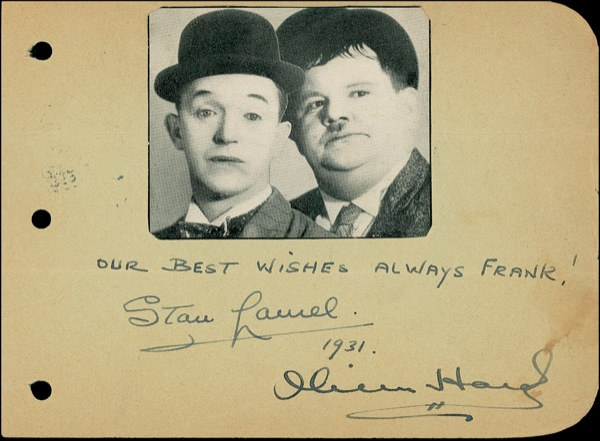 OUR BEST WISHES ALWAYS FRANK!
Stan Laurel.
1931.
Oliver Hardy